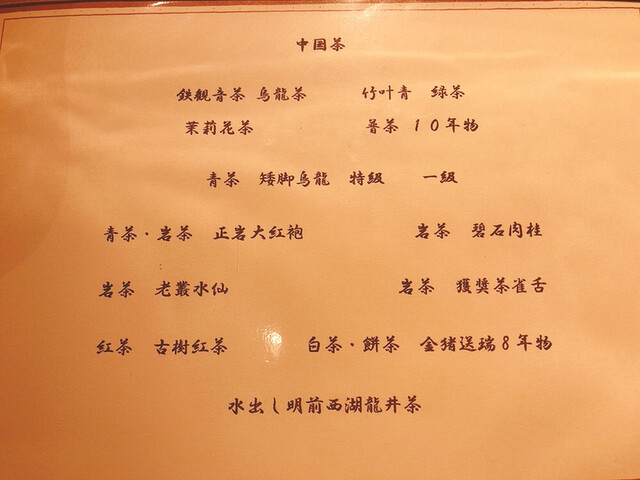 中国茶
鉄観音茶 烏龍茶　竹叶青　緑茶
茉莉花茶　普茶　１０年物
青茶　矮脚烏龍　特級　一級
青茶・岩茶　正岩大紅袍　岩茶　碧石肉桂
岩茶　老叢水仙　岩茶　獲奨茶雀舌
紅茶　古樹紅茶　白茶・餅茶　金猪送瑞８年物
水出し明前西湖龍井茶